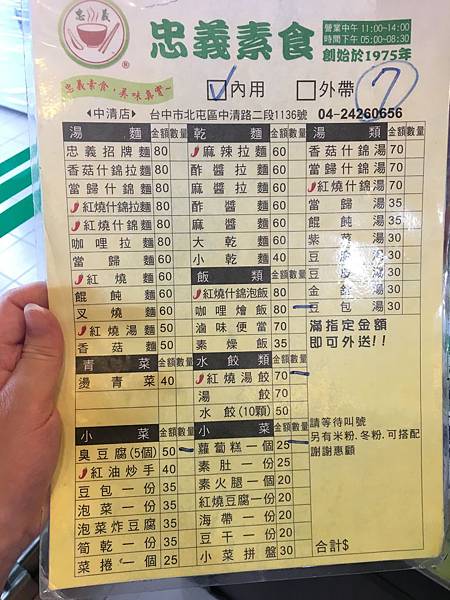 忠義
忠義素食
營業中午11:00~14:00
時間下午05:00~08:30
創始於1975年
忠義素食,美味真賞~
內用 外帶 7
◀中清店▶ 台中市北屯區中清路二段1136號 04-24260656
湯麵 金額 數量
忠義招牌麵 80
香菇什錦拉麵 80
當歸什錦麵 80
紅燒什錦拉麵 80
紅燒什錦麵 80
咖哩拉麵 80
當歸麵 60
紅燒麵 60
餛飩麵 60
叉燒麵 60
紅燒湯麵 50
香菇麵 50
青菜 金額 數量
燙青菜 40
小菜 金額 數量
臭豆腐(5個) 50
紅油炒手 40
豆包一份 35
泡菜一份 35
泡菜炸豆腐 35
筍乾一份 35
菜捲一個 25
乾麵 金額 數量
麻辣拉麵 60
酢醬拉麵 60
麻醬拉麵 60
酢醬麵 60
麻醬麵 60
大乾麵 60
小乾麵 40
飯類 金額 數量
紅燒什錦泡飯 80
咖哩燴飯 80
滷味便當 70
素燥飯 35
水餃類 金額 數量
紅燒湯餃 70
湯餃 70
水餃(10顆) 50
小菜 金額 數量
蘿蔔糕一個 25
素肚一份 25
素火腿一個 20
紅燒豆腐一份 20
海帶一份 20
豆干一份 20
小菜拼盤 30
湯類 金額 數量
香菇什錦湯 70
當歸什錦湯 70
紅燒什錦湯 70
當歸湯 35
餛飩湯 35
紫菜湯 30
豆腐湯 30
豆湯 30
金湯 30
豆包湯 30
滿指定金額
即可外送!!
請等待叫號
另有米粉.冬粉.可搭配
謝謝惠顧
合計$